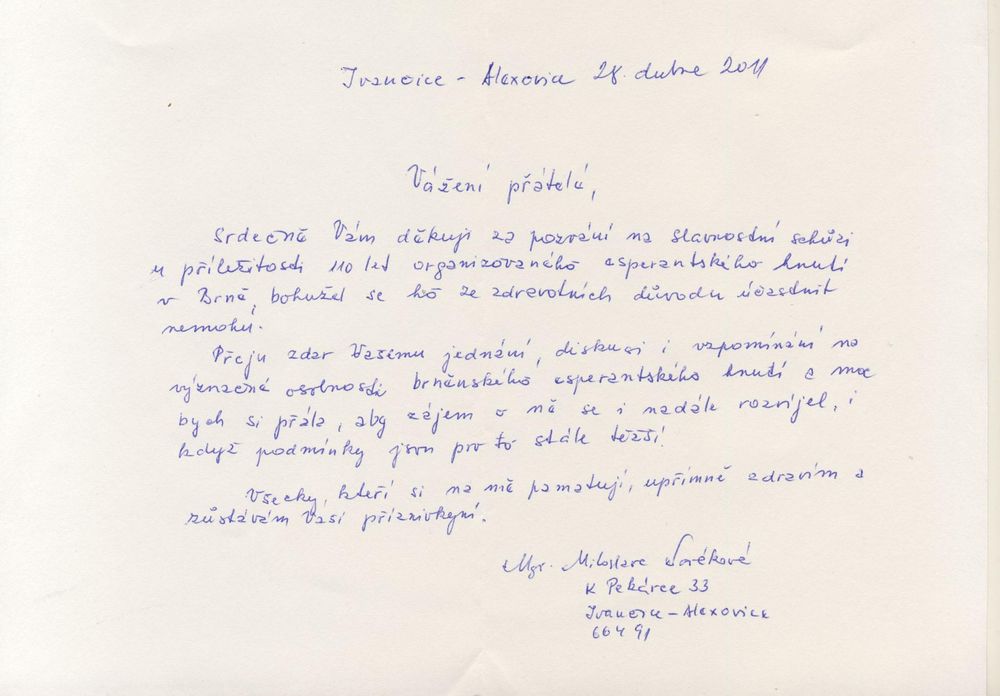 Ivančice - Alexovice 28. dubna 2011
Vážení přátelé,
Srdečně Vám děkuji za pozvání na slavnostní schůzi
u příležitosti 110 let organizovaného esperantského hnutí
v Brně, bohužel se ho ze zdravotních důvodu účastnit
nemohu.
Přeju zdar Vašemu jednání, diskusi i vzpomínání na
význačné osobnosti brněnského esperantského hnutí a moc
bych si přála, aby zájem o ně se i nadále rozvíjel, i
když podmínky jsou pro to stále těžší.
Všecky, kteří si na mě pamatují, upřímně zdravím a
zůstávám Vaší příznivkyní.
Mgr. Miloslava
K Pekárce 33
Ivančice - Alexovice
664 91